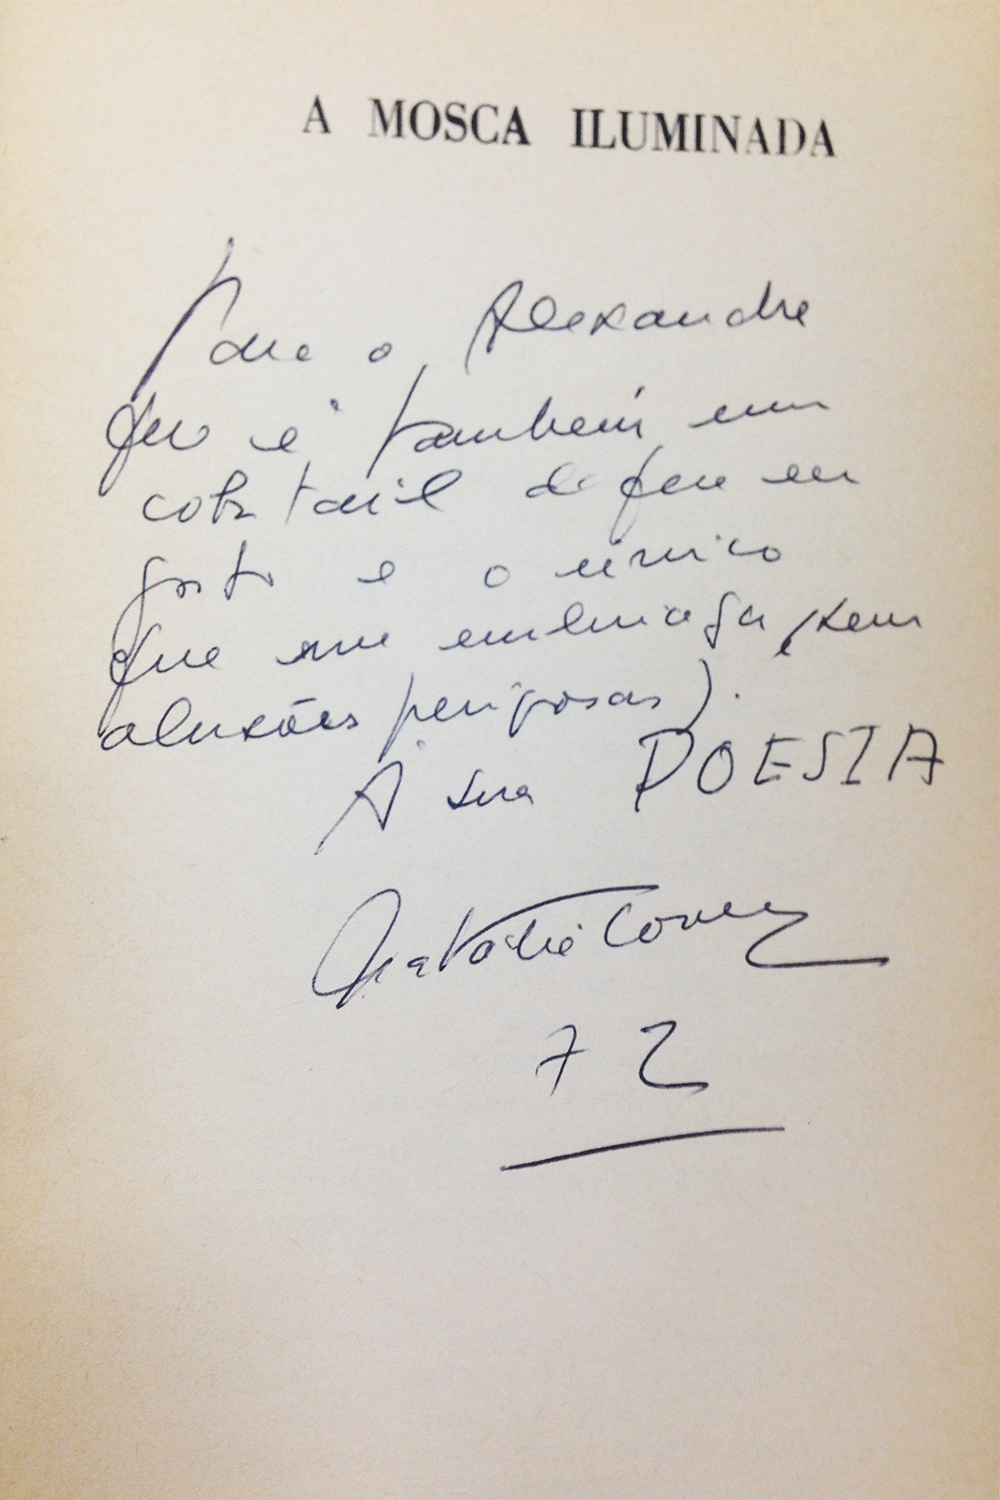 A MOSCA ILUMINADA
Para o Alexandre
que é também um
cocktail de que eu
gosto e o único
que me embriaga (sem
alusões perigosas).
À sua POESIA
Natália Correia
72